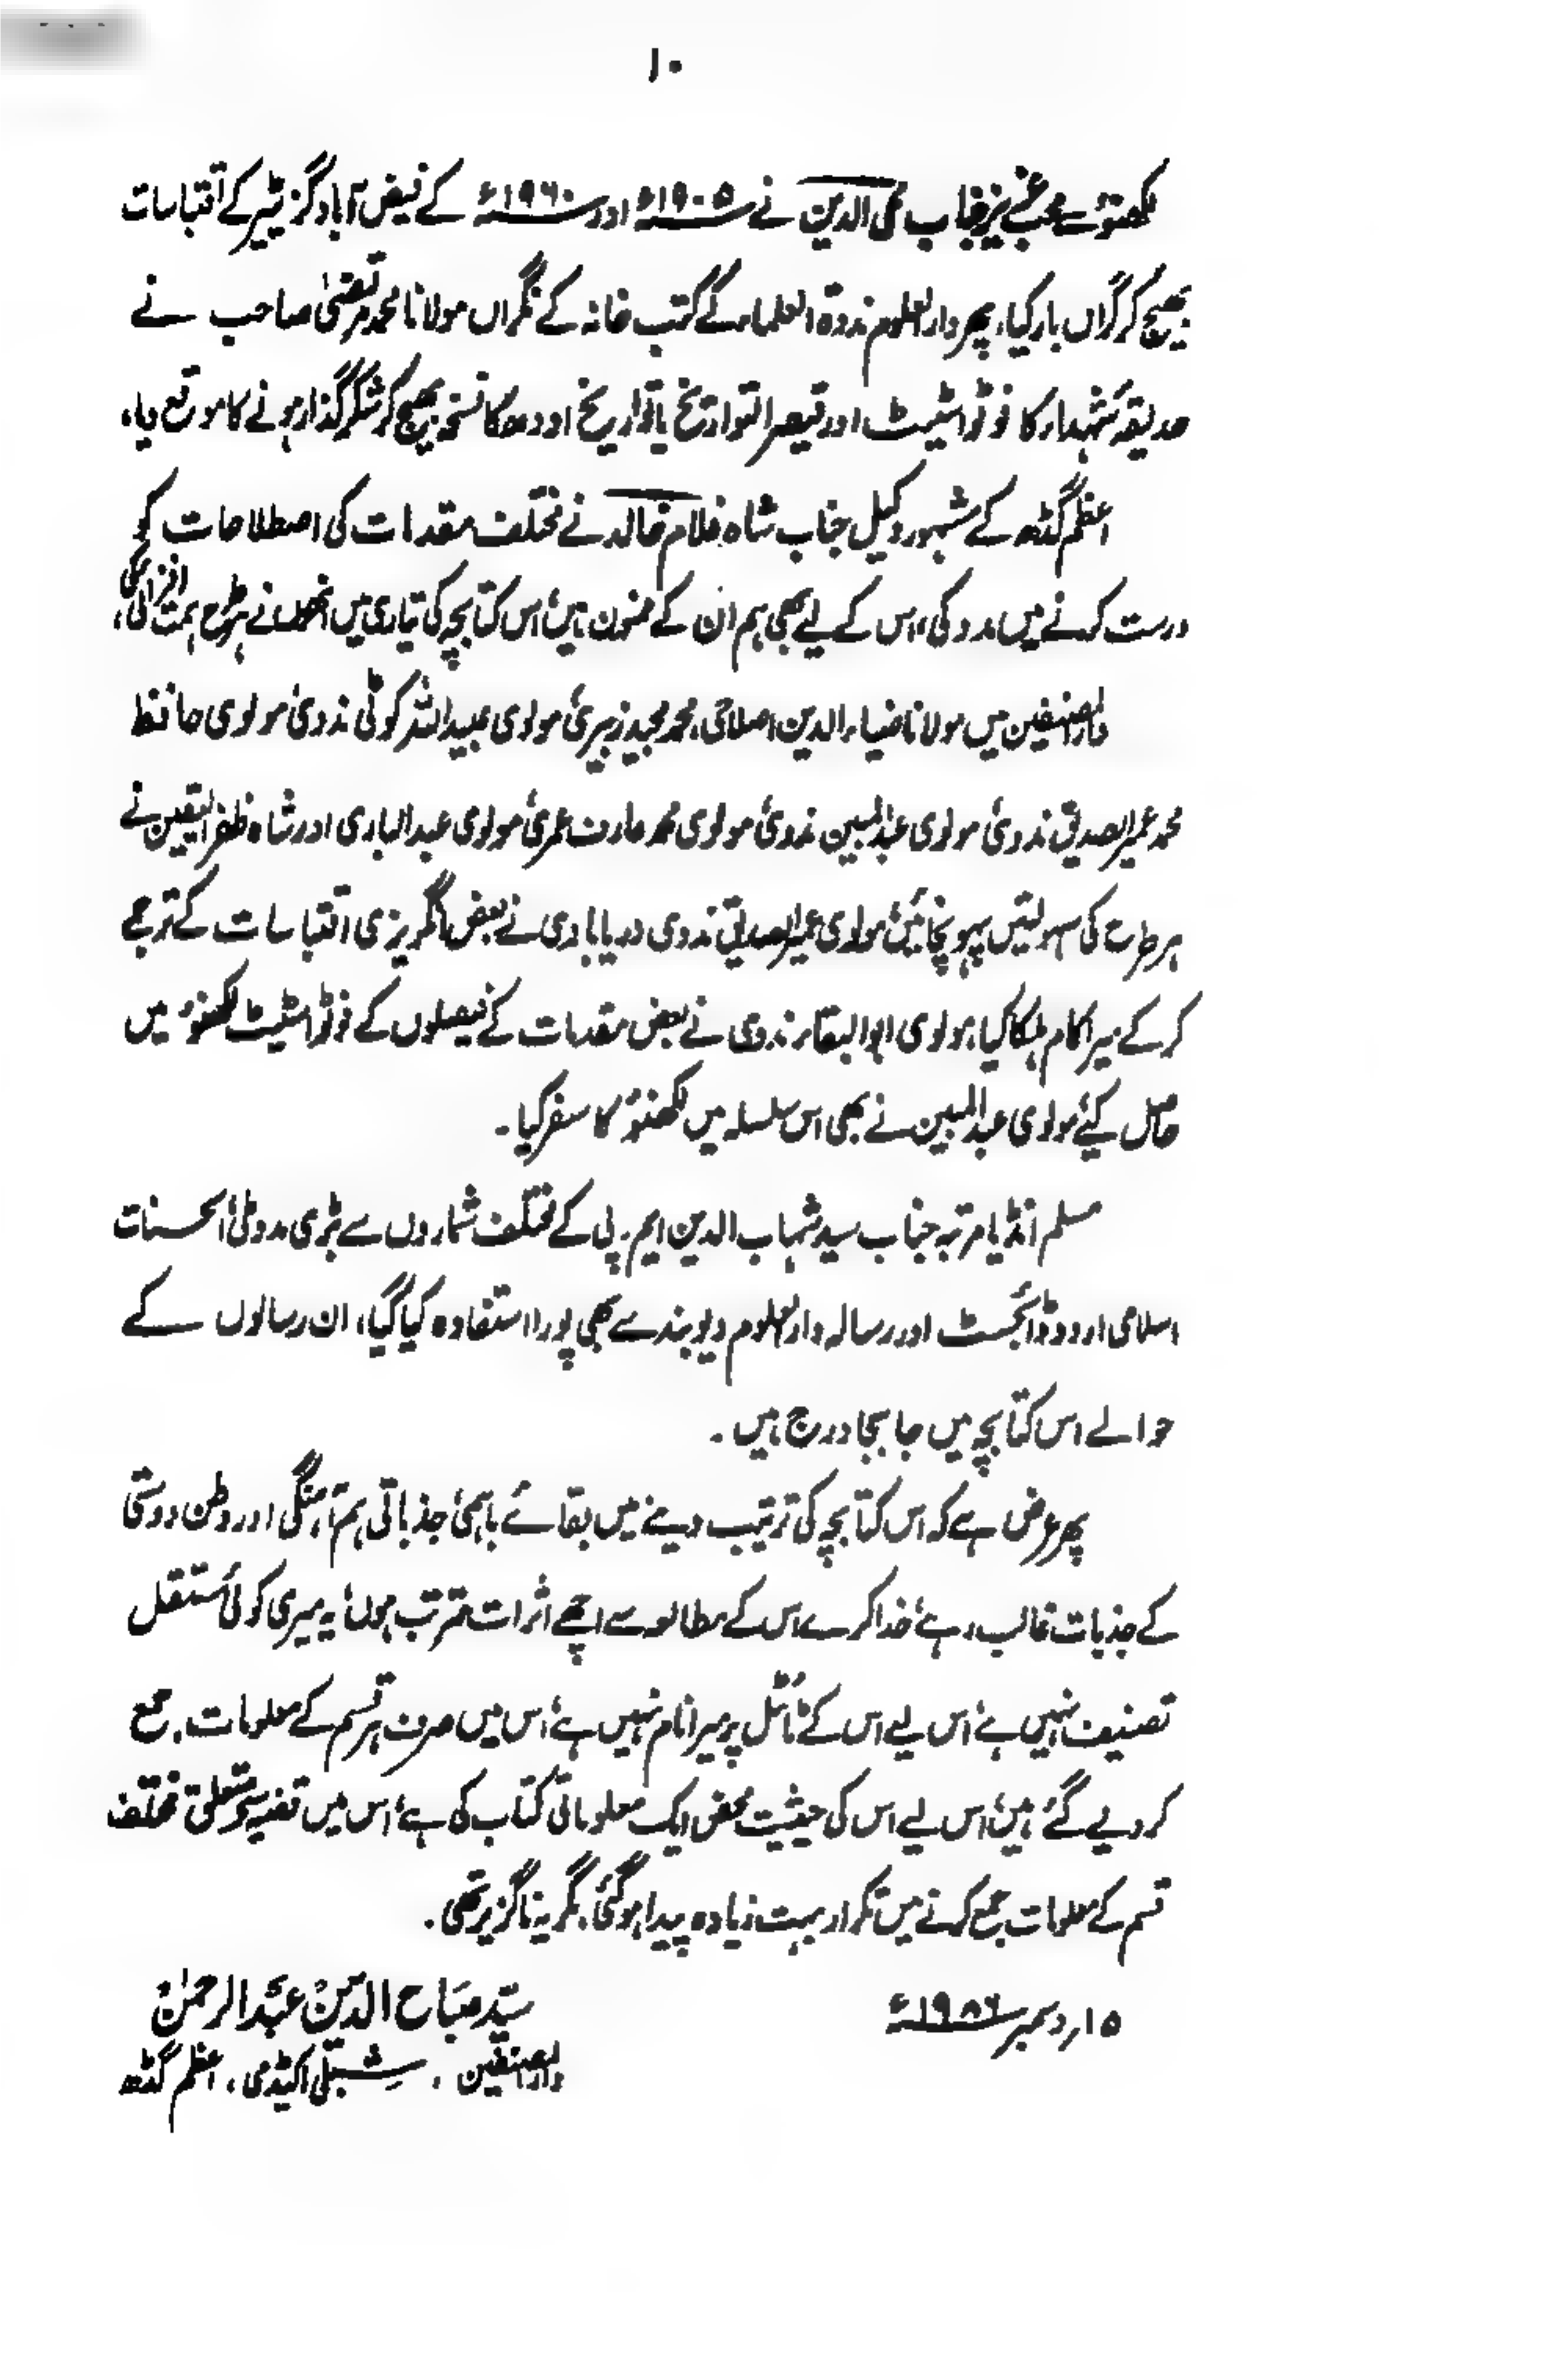 ۱۰
لکھنؤ سے محب عزیز جناب محی الدین نے ۱۹۰۵ء اور ۱۹۶۰ء کے فیض آباد گزیٹیر کے اقتباسات
بھیج کر گراں بار کیا، پھر دارالعلوم ندوۃ العلماء کے کتب خانہ کے نگراں مولانا محمد مرتضیٰ صاحب نے
حدیقۂ شہداء کا فوٹو اسٹیٹ اور قیصر التواریخ یا تواریخ اودھ کا نسخہ بھیج کر شکر گذار ہونے کا موقع دیا،
اعظم گڈھ کے مشہور وکیل جناب شاہ غلام خالد نے مختلف مقدمات کی اصطلاحات کو
درست کرنے میں مدد کی، اس کے لیے بھی ہم ان کے ممنون ہیں، اس کتابچہ کی تیاری میں انھوں نے ہر طرح ہمت افزائی کی،
دارالمصنفین میں مولانا ضیاء الدین اصلاحی، محمد مجید زبیری، مولوی عبید اللہ کوٹی ندوی، مولوی حافظ
محمد عمیر الصدیق ندوی، مولوی عبدالمبین ندوی، مولوی محمد عارف عمری، مولوی عبدالباری اور شاہ ظفر الیقین نے
ہر طرح کی سہولتیں پہونچائیں، مولوی عمیر الصدیق ندوی دریابادی نے بعض انگریزی اقتباسات کے ترجمے
کر کے میرا کام ہلکا کیا، مولوی ابوالبقاء ندوی نے بعض مقدمات کے فیصلوں کے فوٹو اسٹیٹ لکھنؤ میں
حاصل کیے، مولوی عبدالمبین نے بھی اس سلسلہ میں لکھنؤ کا سفر کیا۔
مسلم انڈیا مرتبہ جناب سید شہاب الدین ایم۔پی کے مختلف شماروں سے بڑی مدد ملی، الحسنات
اسلامی اردو ڈائجسٹ اور رسالہ دارالعلوم دیوبند سے بھی پورا استفادہ کیا گیا، ان رسالوں کے
حوالے اس کتابچہ میں جا بجا درج ہیں۔
پھر عرض ہے کہ اس کتابچہ کی ترتیب دینے میں بقائے باہمی، جذباتی ہم آہنگی اور وطن دوستی
کے جذبات غالب رہے، خدا کرے اس کے مطالعہ سے اچھے اثرات مترتب ہوں، یہ میری کوئی مستقل
تصنیف نہیں ہے، اس لیے اس کے ٹائٹل پر میرا نام نہیں ہے، اس میں صرف ہر قسم کے معلومات جمع
کر دیے گئے ہیں، اس لیے اس کی حیثیت محض ایک معلوماتی کتاب کی ہے، اس میں قضیہ سے متعلق مختلف
قسم کے معلومات جمع کرنے میں تکرار بہت زیادہ پیدا ہوگئی، مگر یہ ناگزیر تھی۔
۱۵؍ دسمبر ۱۹۸۶ء
سید صباح الدین عبدالرحمٰن
دارالمصنفین، شبلی اکیڈمی، اعظم گڈھ